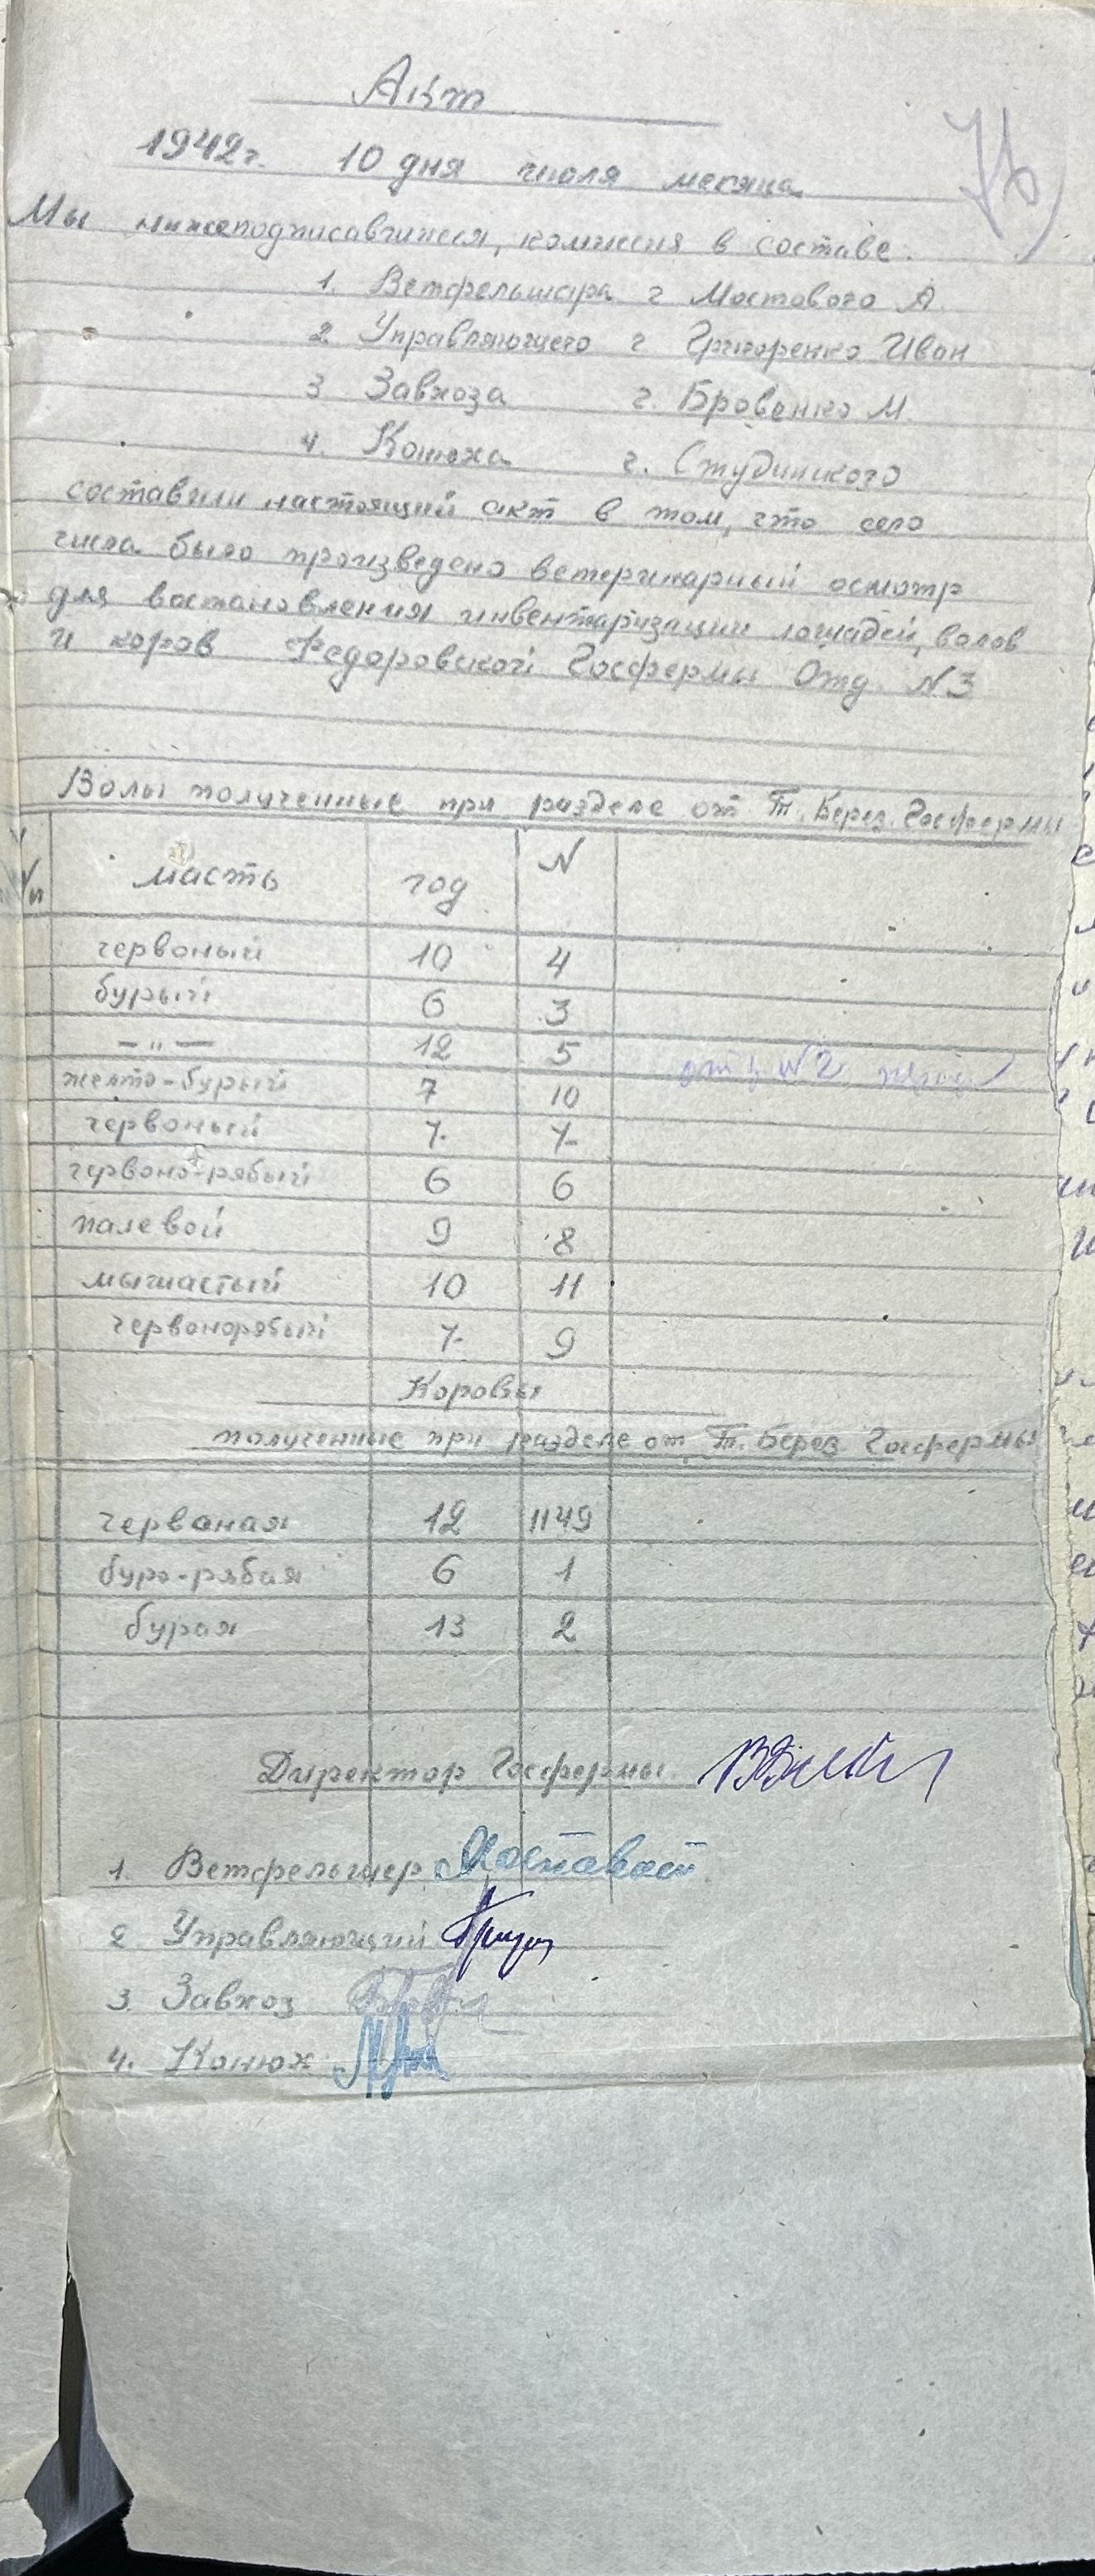 Акт
1942г. 10 дня июля месяца
76
Мы нижеподписавшиеся, комиссия в составе.
1. Ветфельшара г Мостового А.
2 Управляющего г Григоренко Иван
3 Завхоза г. Бровенко М.
4. Конюха г. Студинского
составили настоящий акт в том, что сего
числа было произведено ветеринарный осмотр
для востановления инвентаризации лошадей, волов
и коров Федоровской Госфермы Отд. N3
Волы полученные при разделе от Т. Берез. Госфермы
масть год N
червоный 10 4
бурый 6 3
— " — 12 5
желто-бурый 7 10
червоный 7. 7
червоно-рябый 6 6
палевой 9 8
мышастый 10 11
червонорябый 7. 9
Коровы
полученные при разделе от Т. Берез Госфермы
червоная 12 1149
буро-рябая 6 1
бурая 13 2
Директор Госфермы
1. Ветфельшер Мостовой
2 Управляющий
3. Завхоз
4. Конюх